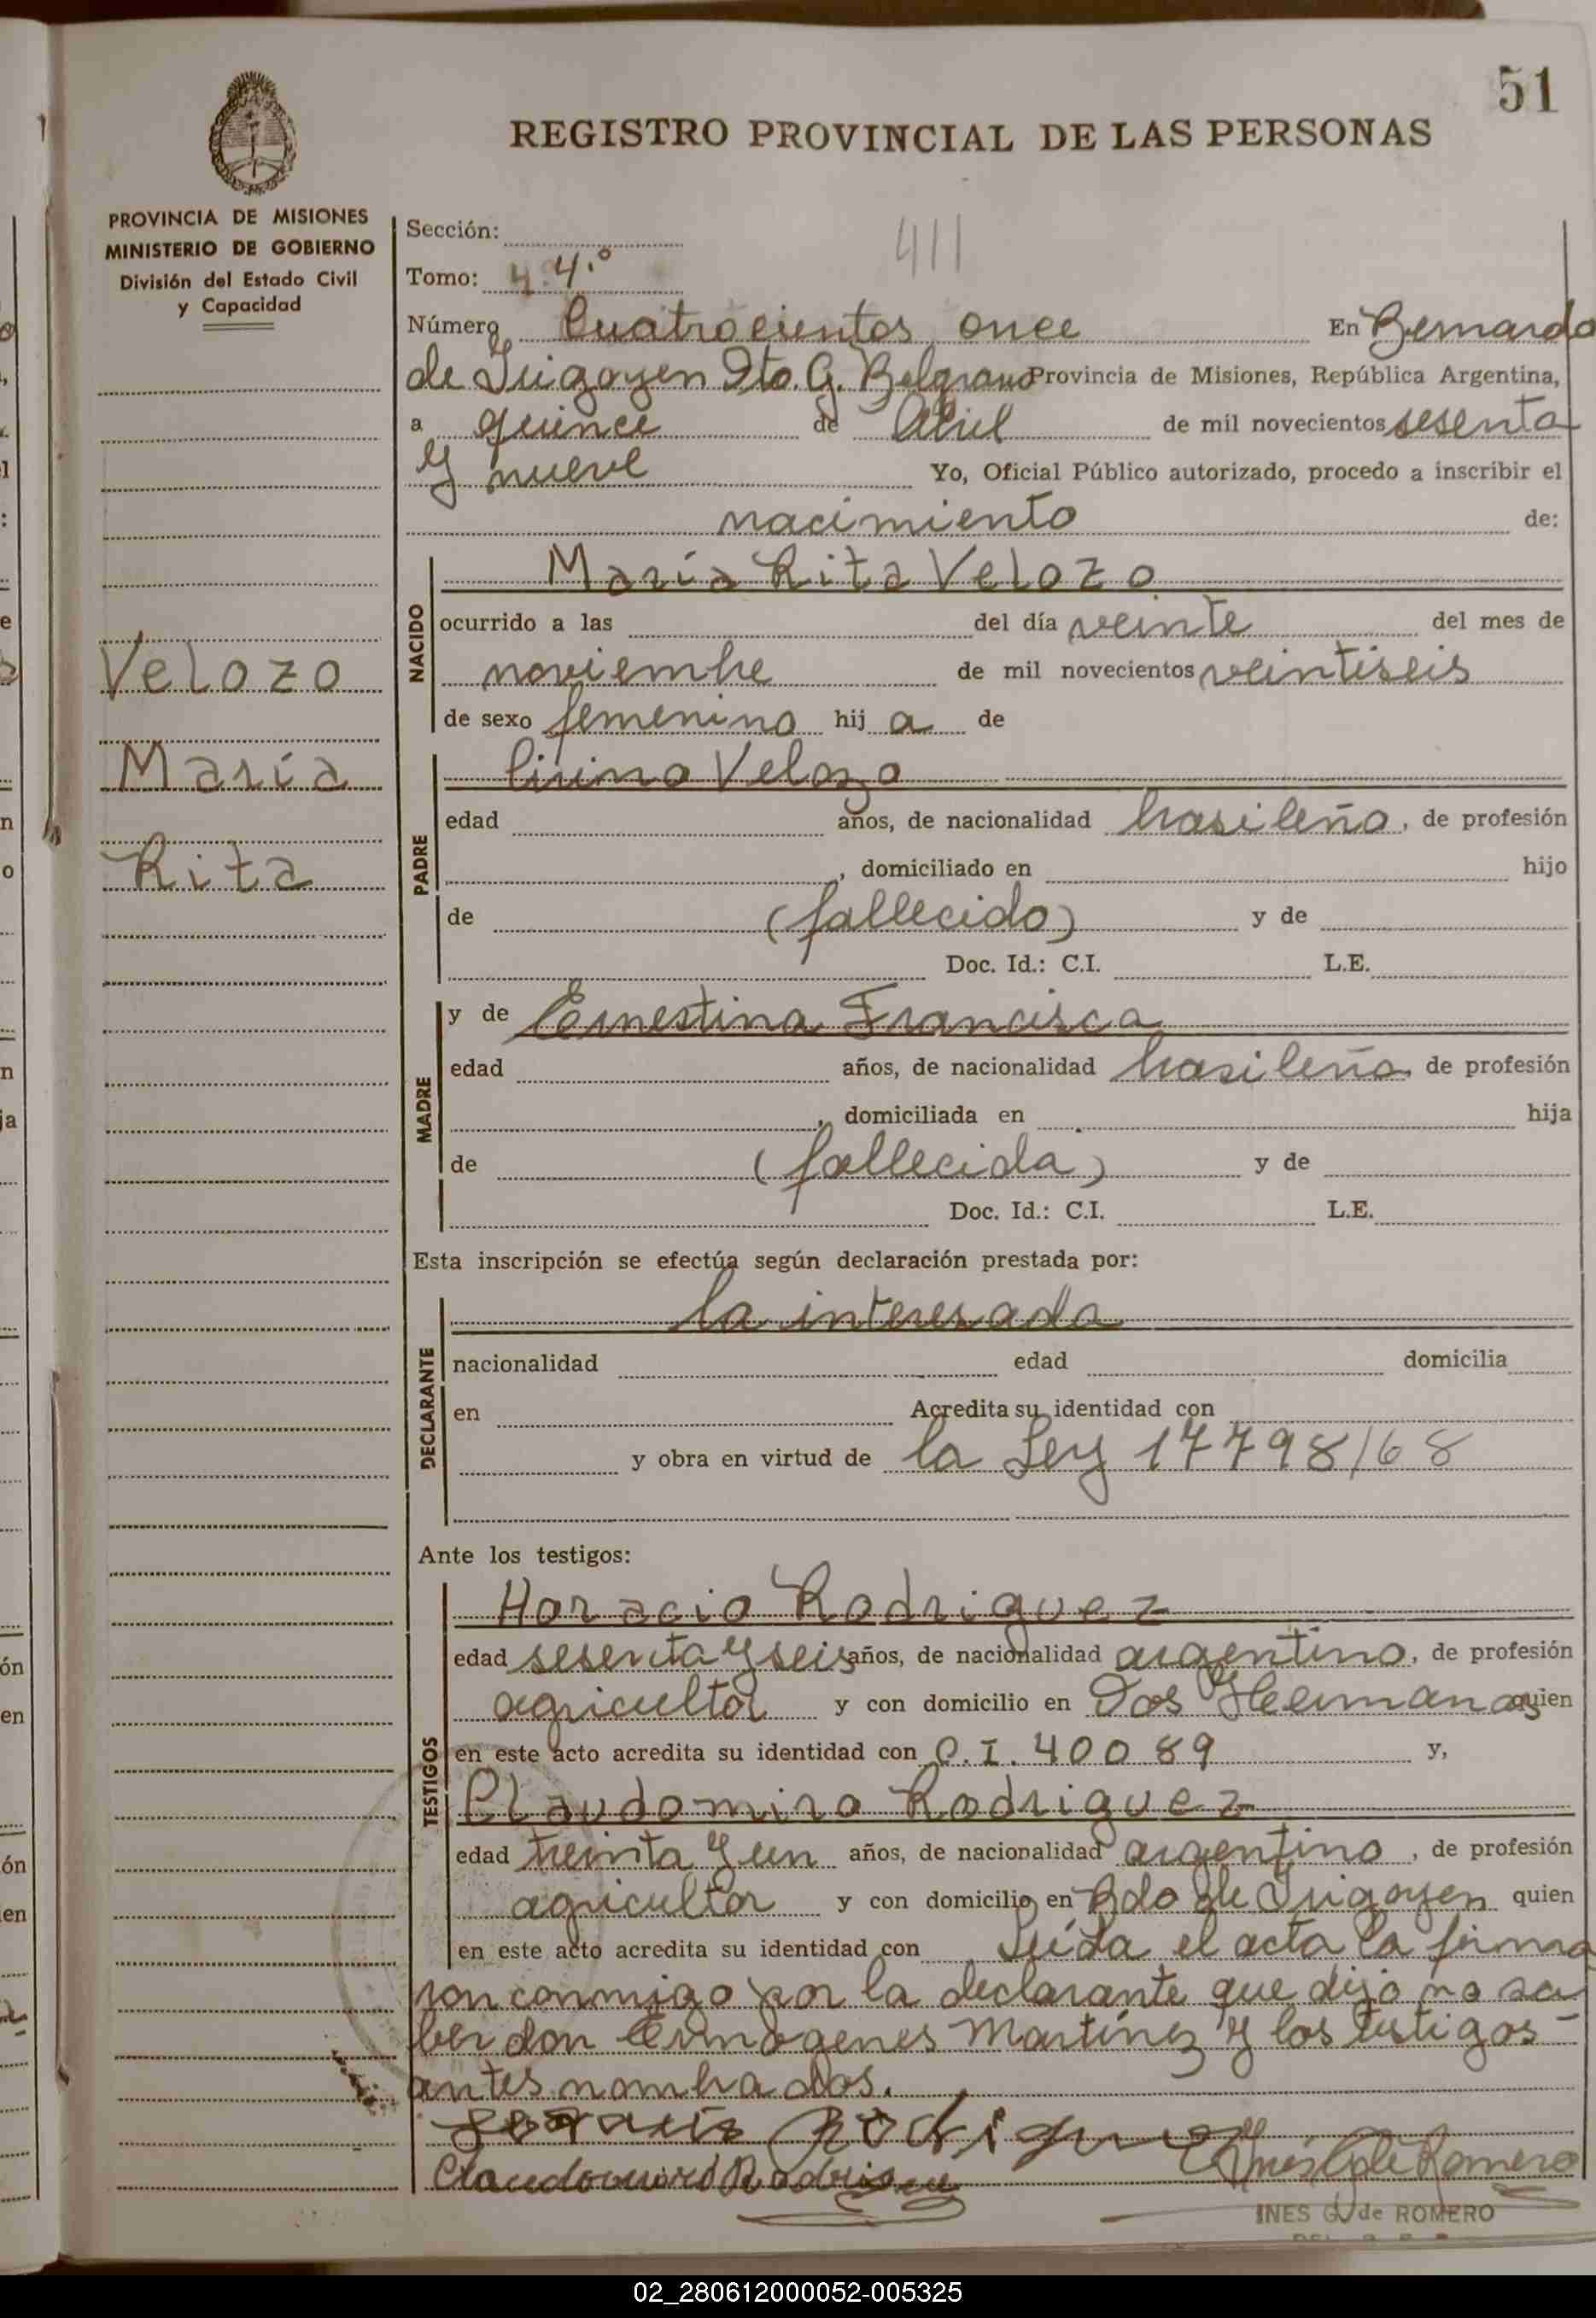 51
REGISTRO PROVINCIAL DE LAS PERSONAS
PROVINCIA DE MISIONES
MINISTERIO DE GOBIERNO
División del Estado Civil
y Capacidad
Sección:
411
Tomo: 4.4.º
Número Cuatrocientos once En Bernardo
de Irigoyen Dto. G. Belgrano Provincia de Misiones, República Argentina,
a quince de Abril de mil novecientos sesenta
y nueve Yo, Oficial Público autorizado, procedo a inscribir el
nacimiento de:
NACIDO
María Rita Velozo
ocurrido a las del día veinte del mes de
noviembre de mil novecientos veintiseis
de sexo femenino hij a de
Velozo
María
Rita
PADRE
Cirino Velozo
edad años, de nacionalidad brasileño, de profesión
, domiciliado en hijo
de (fallecido) y de
Doc. Id.: C.I. L.E.
MADRE
y de Ernestina Francisca
edad años, de nacionalidad brasileña de profesión
, domiciliada en hija
de (fallecida) y de
Doc. Id.: C.I. L.E.
Esta inscripción se efectúa según declaración prestada por:
DECLARANTE
la interesada
nacionalidad edad domicilia
en Acredita su identidad con
y obra en virtud de la Ley 17798/68
Ante los testigos:
TESTIGOS
Horacio Rodriguez
edad sesenta y seis años, de nacionalidad argentino, de profesión
agricultor y con domicilio en Dos Hermanas quien
en este acto acredita su identidad con C.I. 40089 y,
Claudomiro Rodriguez
edad treinta y un años, de nacionalidad argentino, de profesión
agricultor y con domicilio en Bdo de Irigoyen quien
en este acto acredita su identidad con Leída el acta la firma
ron conmigo por la declarante que dijo no sa
ber don Ermógenes Martínez y los testigos
antes nombrados.
Rodrigue
Claudomiro Rodrigue
Inés G de Romero
INES G. de ROMERO
02_280612000052-005325